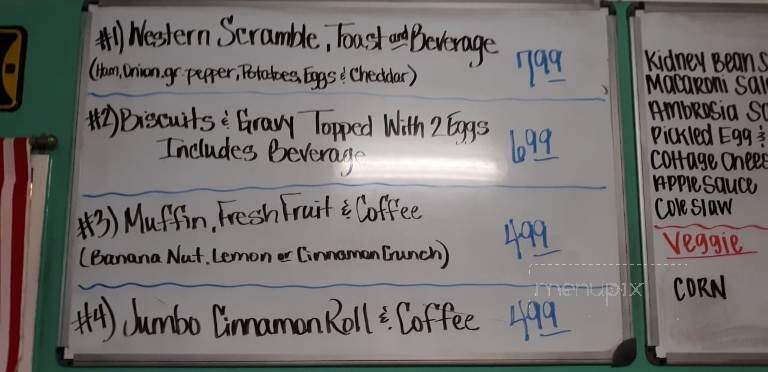 #1) Western Scramble, Toast and Beverage 7.99
(Ham, Onion, gr. pepper, Potatoes, Eggs & Cheddar)
#2) Biscuits & Gravy Topped With 2 Eggs 6.99
Includes Beverage
#3) Muffin, Fresh Fruit & Coffee 4.99
(Banana Nut, Lemon or Cinnamon Crunch)
#4) Jumbo Cinnamon Roll & Coffee 4.99
Kidney Beans
Macaroni Sal
Ambrosia Sa
Pickled Egg &
Cottage Chees
Applesauce
Cole Slaw
Veggie
CORN
menupix